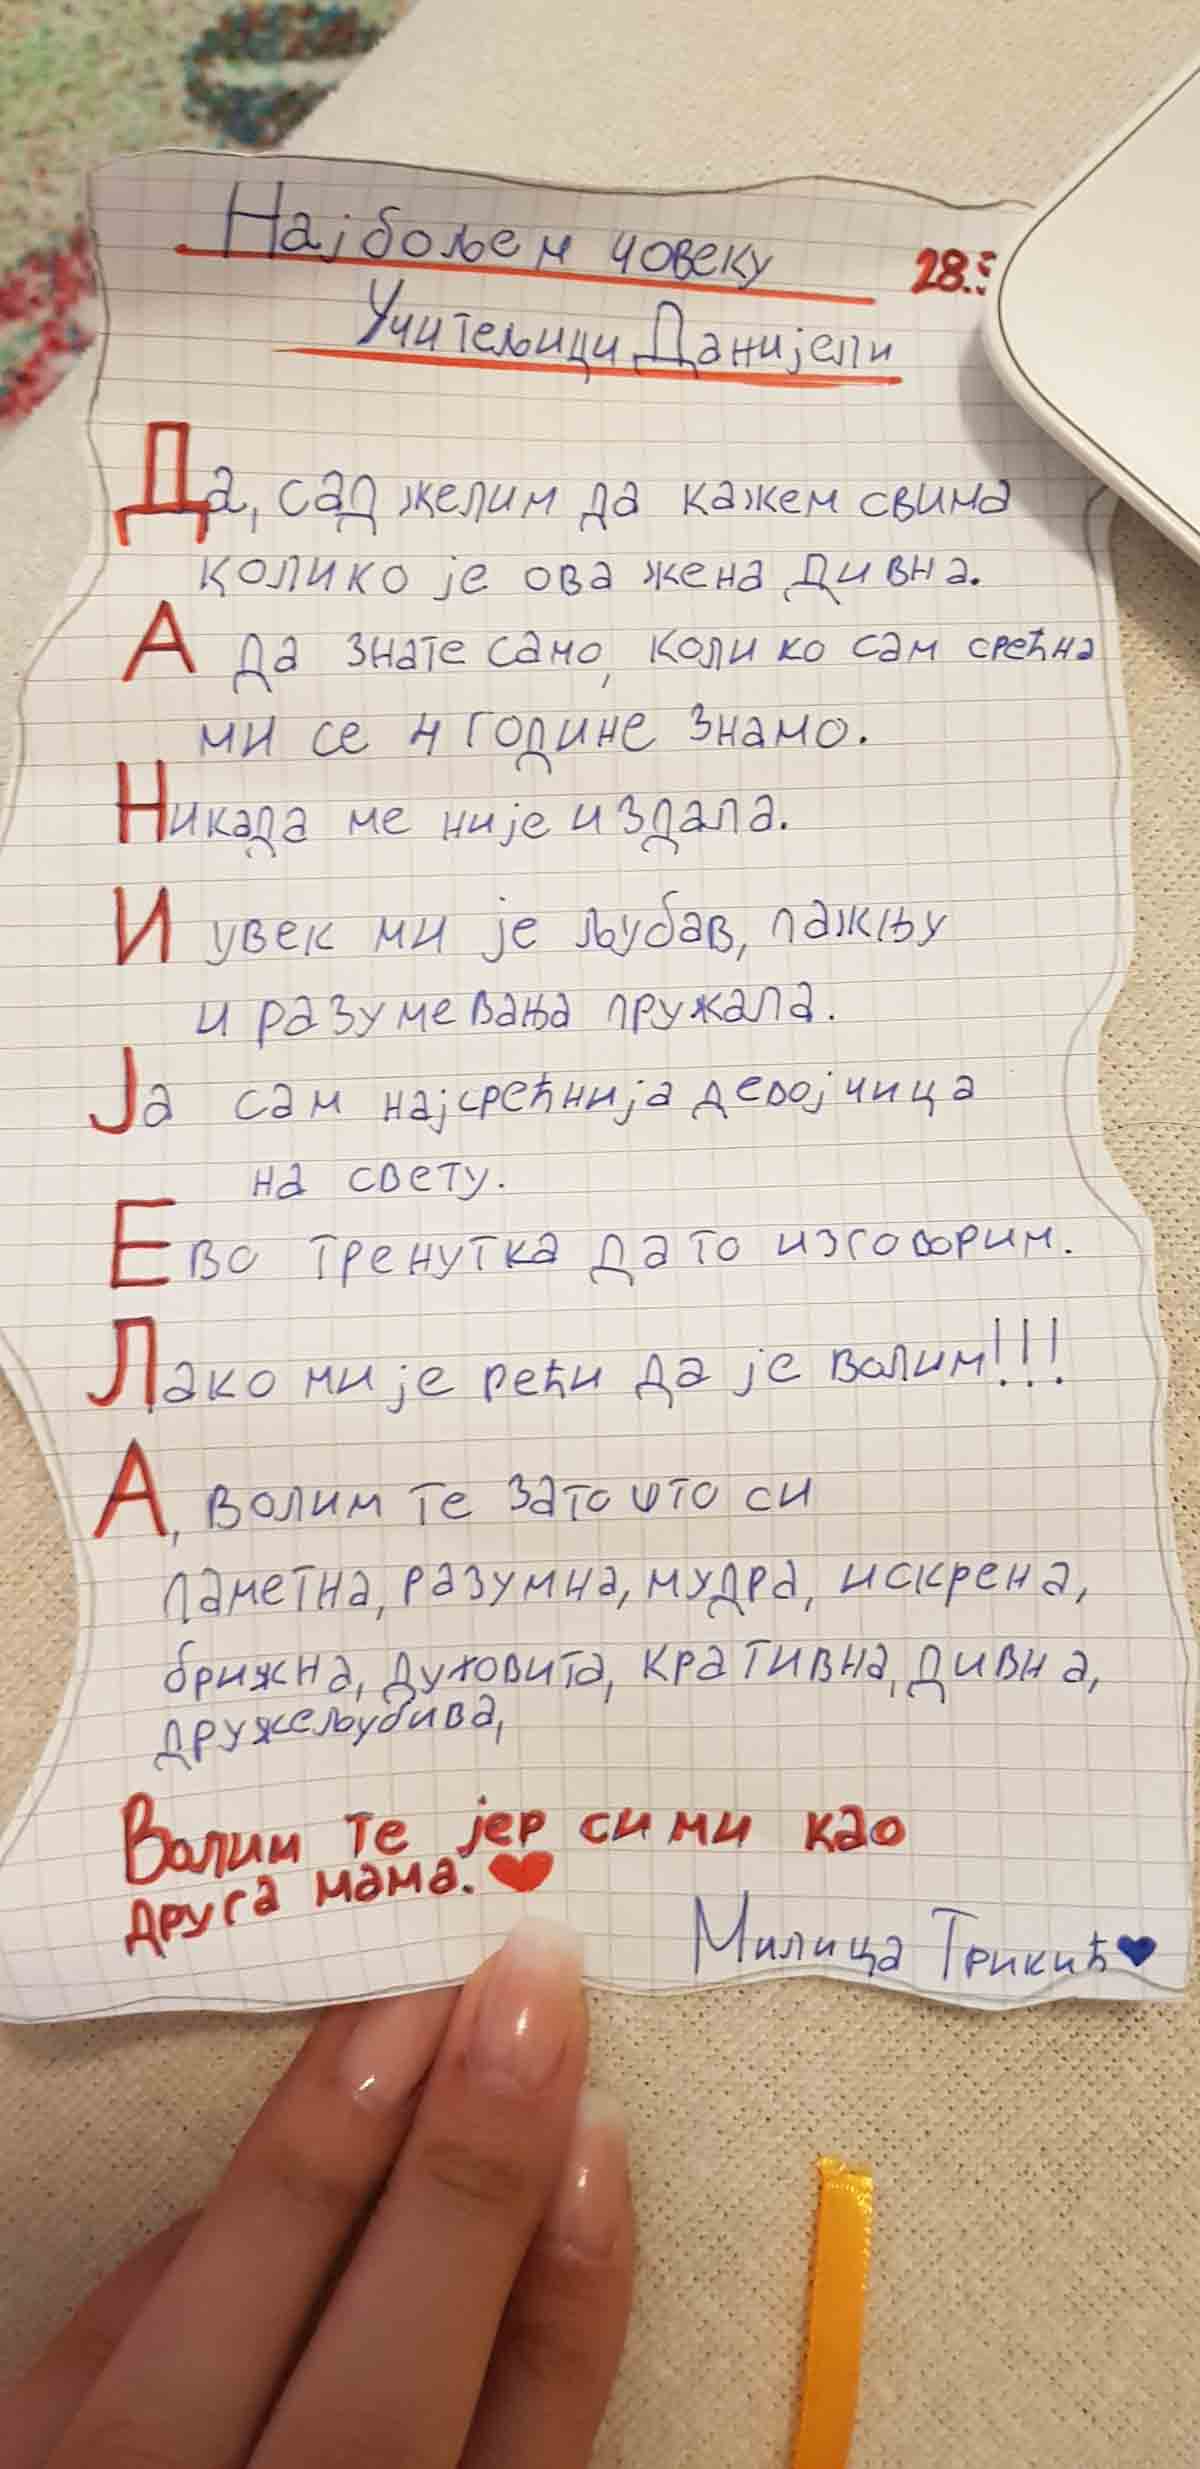 Најбољем човеку
28.
Учитељици Данијели
Да, сад желим да кажем свима
колико је ова жена дивна.
А да знате само, колико сам срећна
ми се 4 године знамо.
Никада ме није издала.
И увек ми је љубав, пажњу
и разумевања пружала.
Ја сам најсрећнија девојчица
на свету.
Ево тренутка да то изговорим.
Лако ми је рећи да је волим!!!
А, волим те зато што си
паметна, разумна, мудра, искрена,
брижна, духовита, кративна, дивна,
дружељубива,
Волим те јер си ми као
друга мама.
Милица Трикић